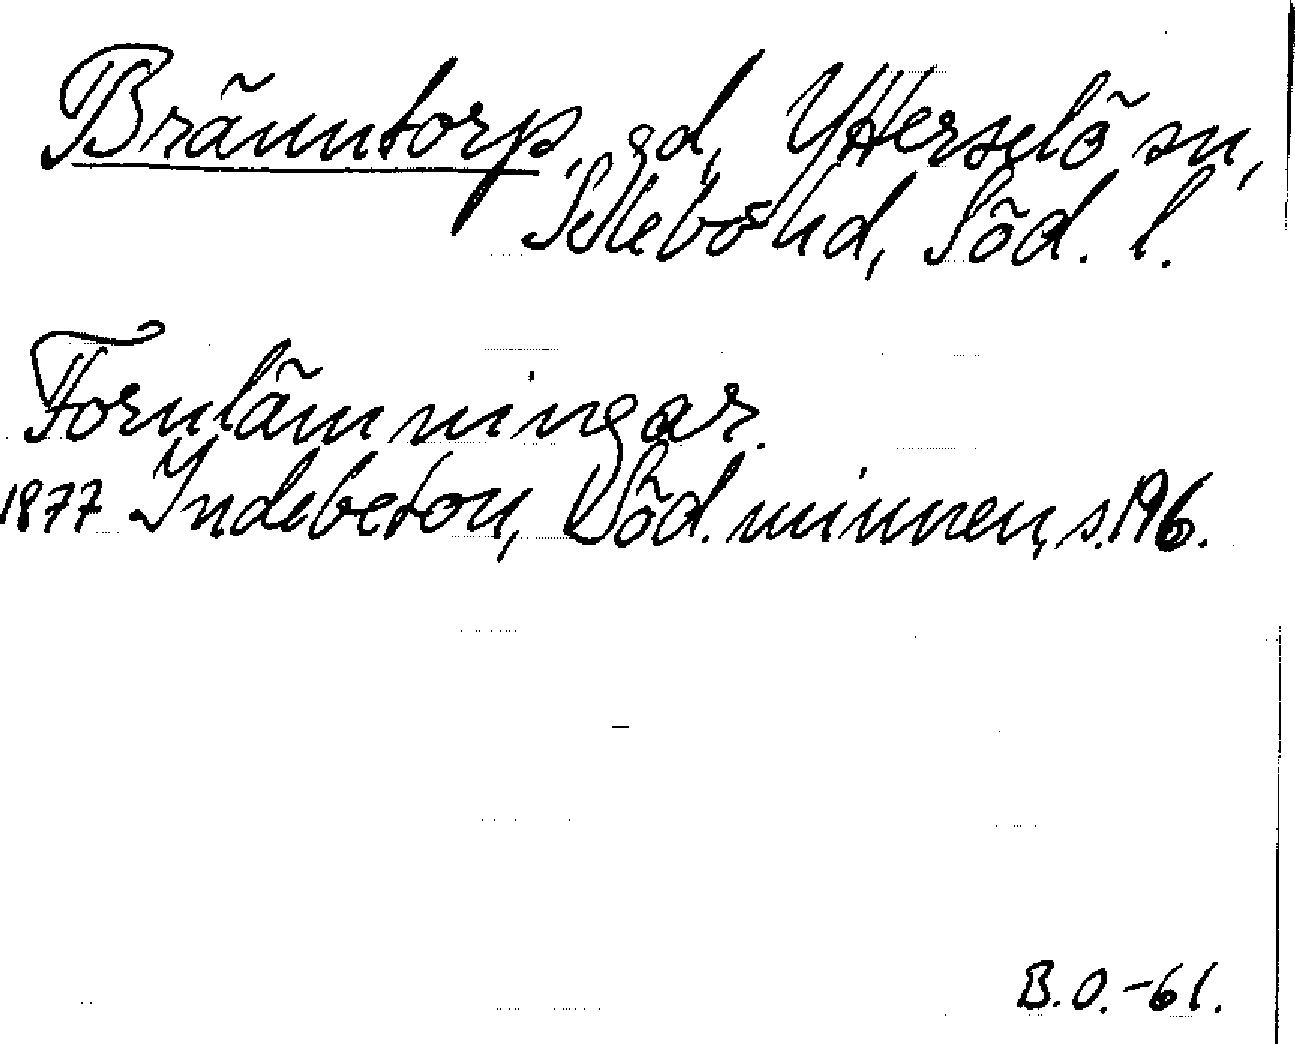 Bränntorp, gd, Ytterselö sn,
Selebo hd, Söd. l.
Fornlämningar.
1877 Indebetou, Söd. minnen, s. 196.
B.O.-61.